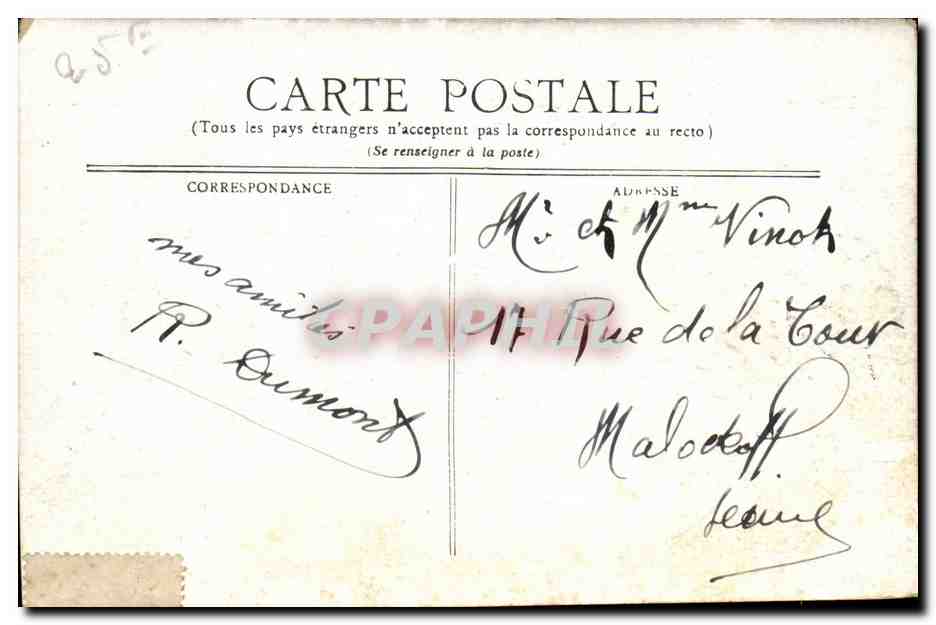 CARTE POSTALE
(Tous les pays étrangers n'acceptent pas la correspondance au recto)
(Se renseigner à la poste)
CORRESPONDANCE
mes amitiés
R. Dumont
ADRESSE
Mr et Mme Vinot
17 Rue de la Tour
Malockoff
Seine
CPARHIL